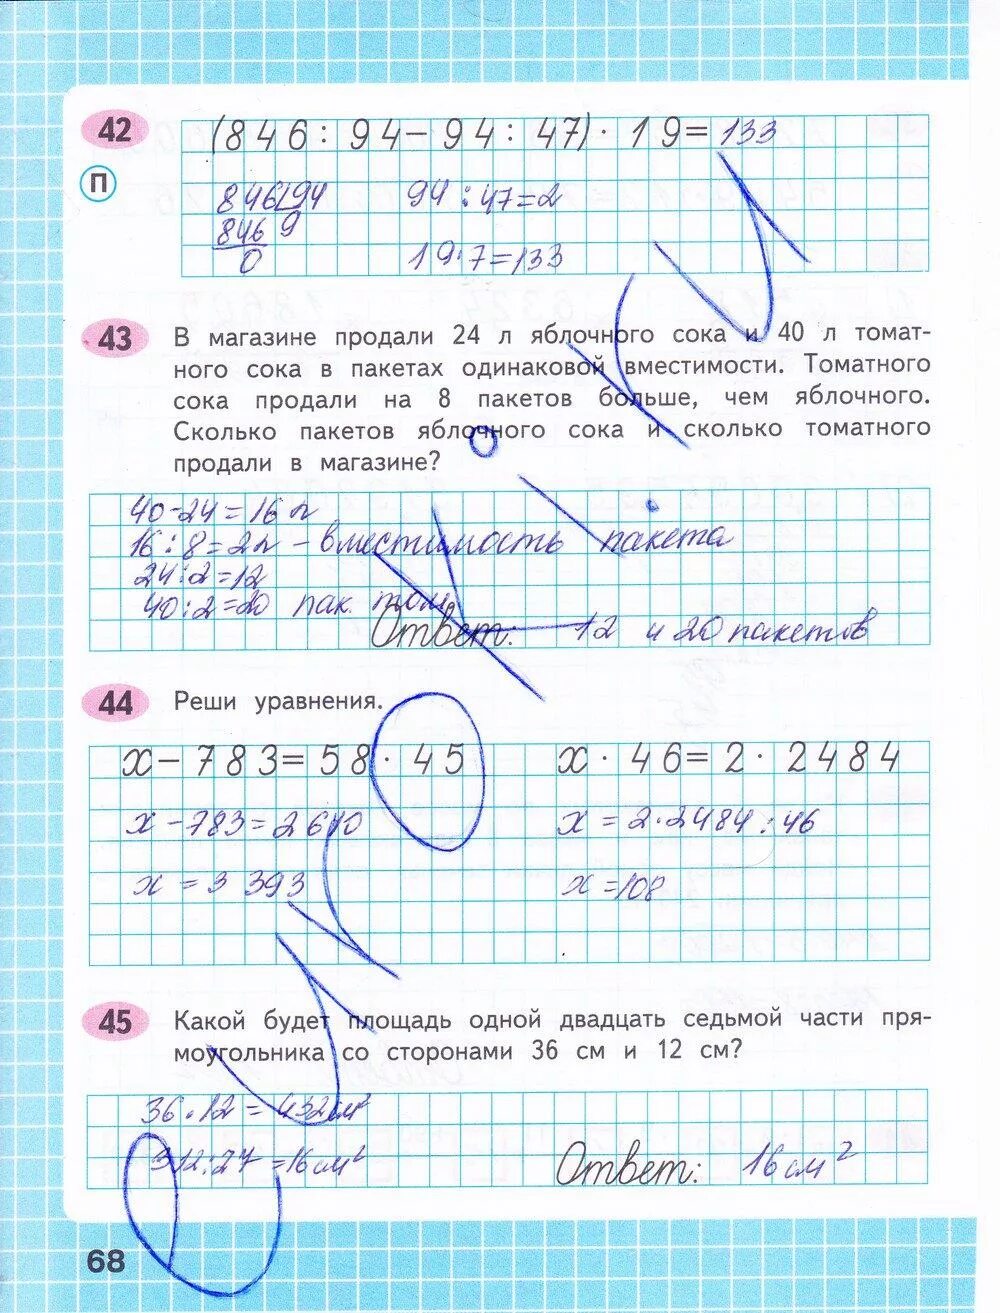 42 (846 : 94 - 94 : 47) · 19 = 133
П
846 94 94 : 47 = 2
846 9
0 19 · 7 = 133
43 В магазине продали 24 л яблочного сока и 40 л томат-
ного сока в пакетах одинаковой вместимости. Томатного
сока продали на 8 пакетов больше, чем яблочного.
Сколько пакетов яблочного сока и сколько томатного
продали в магазине?
40 - 24 = 16 л
16 : 8 = 2 л - вместимость пакета
24 : 2 = 12
40 : 2 = 20 пак. том.
Ответ: 12 и 20 пакетов
44 Реши уравнения.
x - 783 = 58 · 45 x · 46 = 2 · 2484
x - 783 = 2610 x = 2 · 2484 : 46
x = 3 393 x = 108
45 Какой будет площадь одной двадцать седьмой части пря-
моугольника со сторонами 36 см и 12 см?
36 · 12 = 432 см²
: 27 = 16 см² Ответ: 16 см²
68